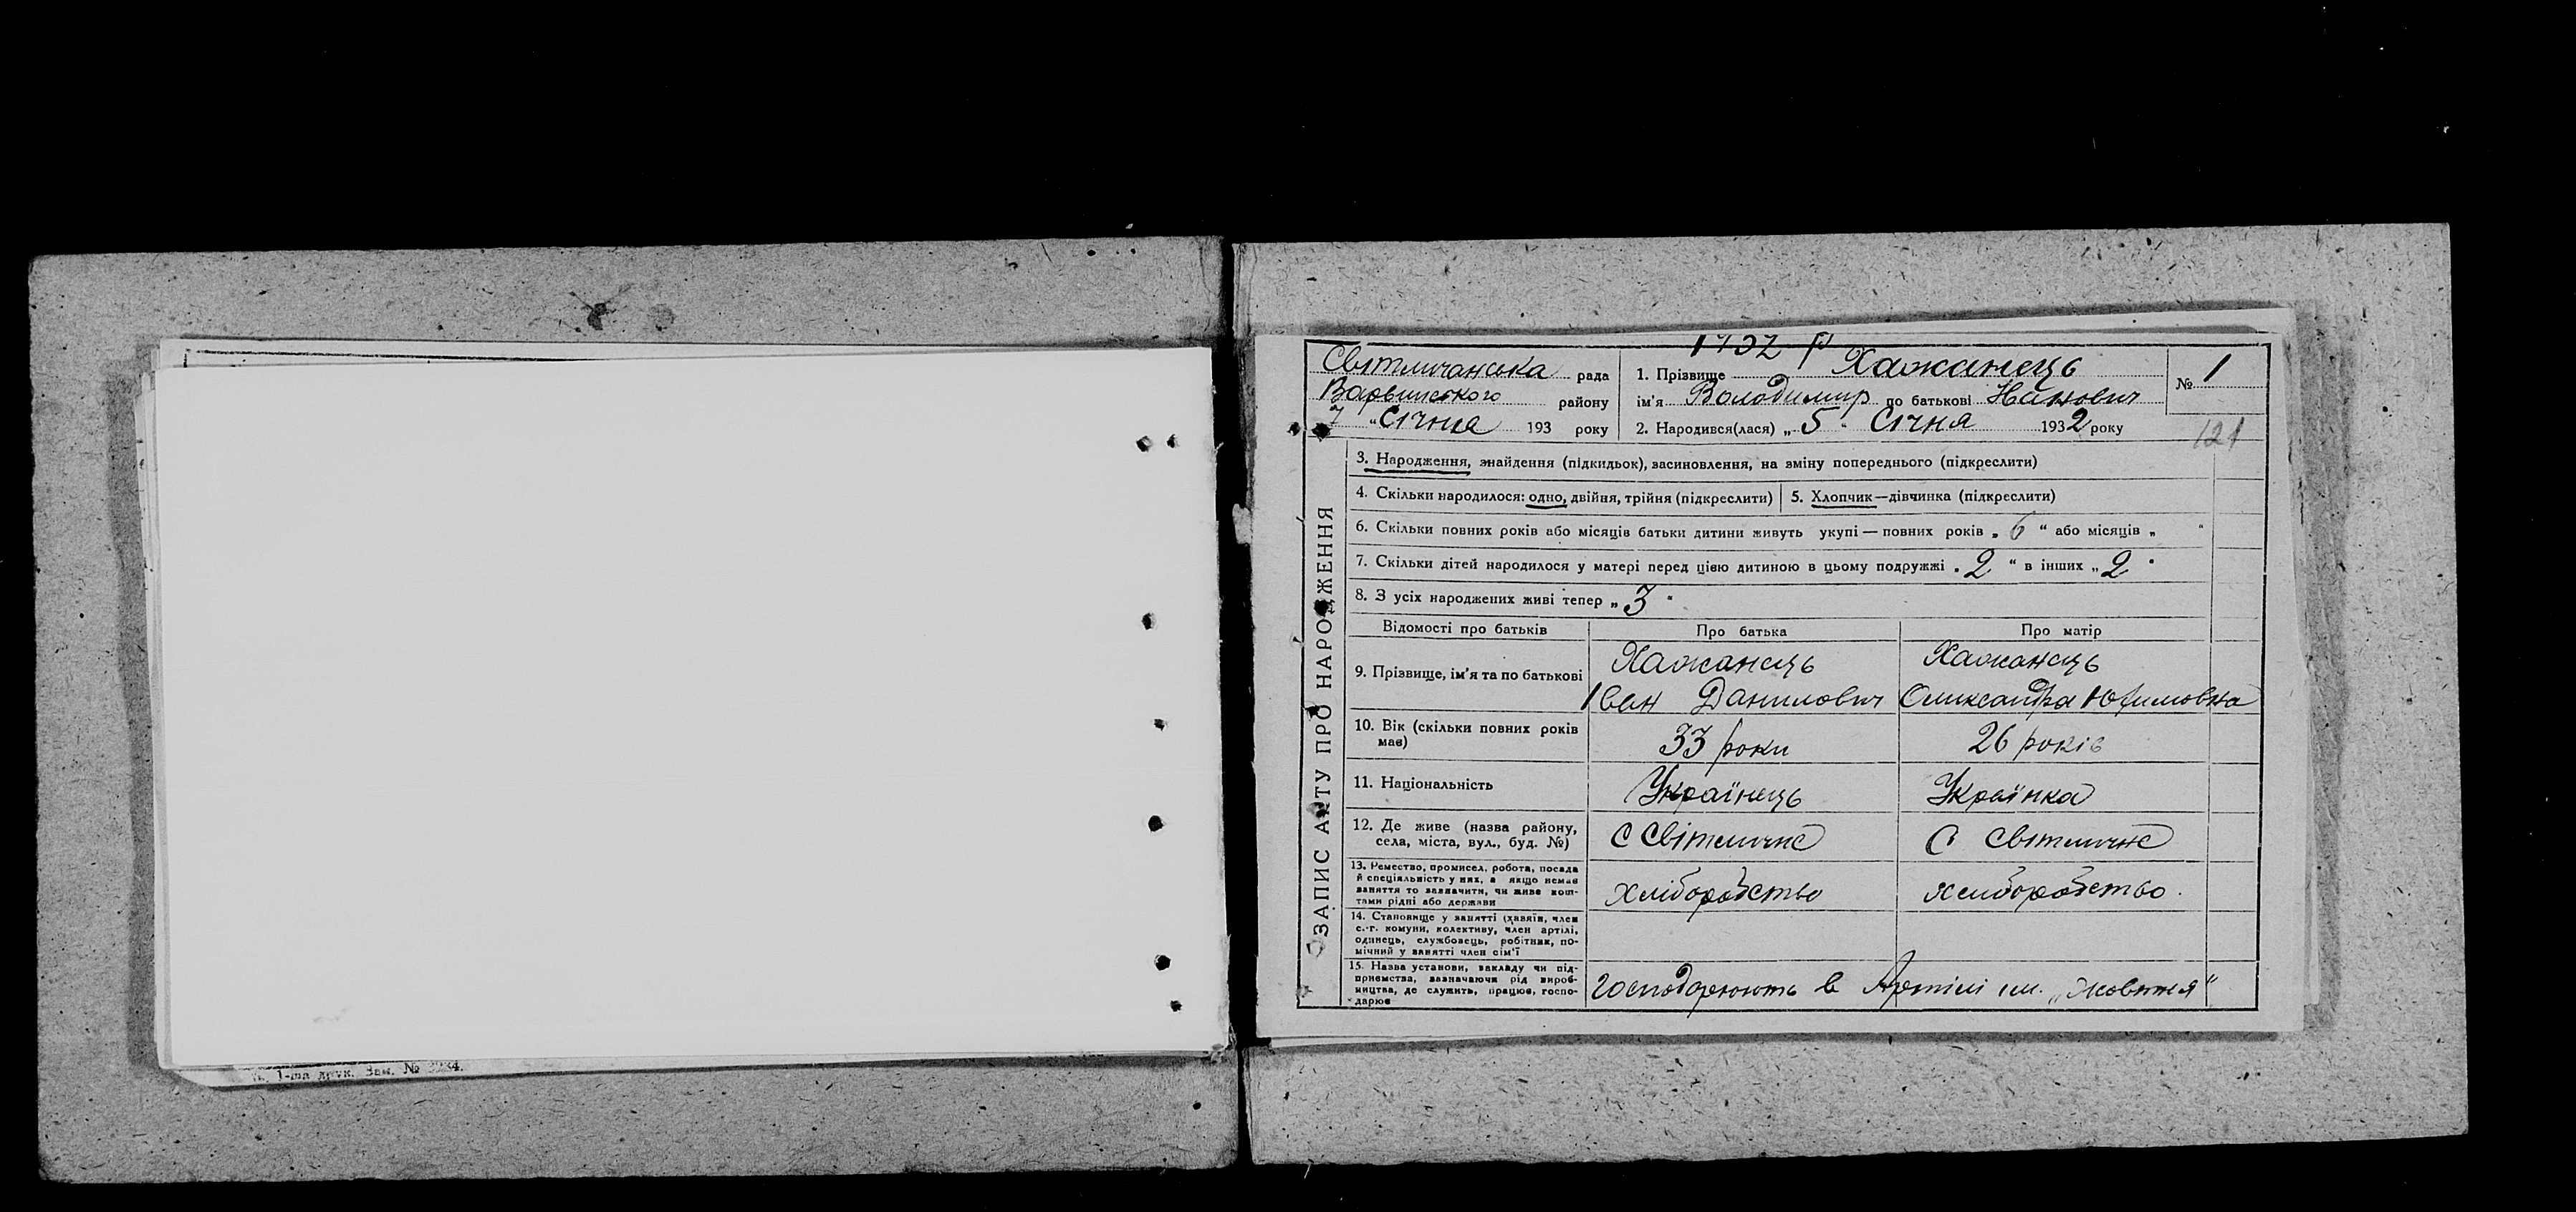 1932 р
Світличанська рада
Варвинського району
7 "Січня 193 року
1. Прізвище Хажанець
ім'я Володимир по батькові Іванович
2. Народився(лася) „ 5 " Січня 1932 року
№ 1
121
ЗАПИС АКТУ ПРО НАРОДЖЕННЯ
3. Народження, знайдення (підкидьок), засиновлення, на зміну попереднього (підкреслити)
4. Скільки народилося: одно, двійня, трійня (підкреслити) 5. Хлопчик—дівчинка (підкреслити)
6. Скільки повних років або місяців батьки дитини живуть укупі — повних років „ 6 " або місяців „ "
7. Скільки дітей народилося у матері перед цією дитиною в цьому подружжі „ 2 " в інших „ 2 "
8. З усіх народжених живі тепер „ 3 "
Відомості про батьків Про батька Про матір
9. Прізвище, ім'я та по батькові
Хажанець
Іван Данилович
Хажанець
Олександра Юхимовна
10. Вік (скільки повних років
має)
33 роки
26 років
11. Національність
Українець
Українка
12. Де живе (назва району,
села, міста, вул., буд. №)
С Світличне
С Світличне
13. Ремество, промисел, робота, посада
й спеціяльність у них, а якщо немає
заняття то зазначити, чи живе кош-
тами рідні або держави
Хліборобство
хліборобство.
14. Становище у занятті (хазяїн, член
с.-г. комуни, колективу, член артілі,
одинець, службовець, робітник, по-
мічний у занятті член сім'ї
15. Назва установи, закладу чи під-
приємства, зазначаючи рід вироб-
ництва, де служить, працює, госпо-
дарює
Господарюють в Артілі ім. „Жовтня"
1-ша друк. Зам. №